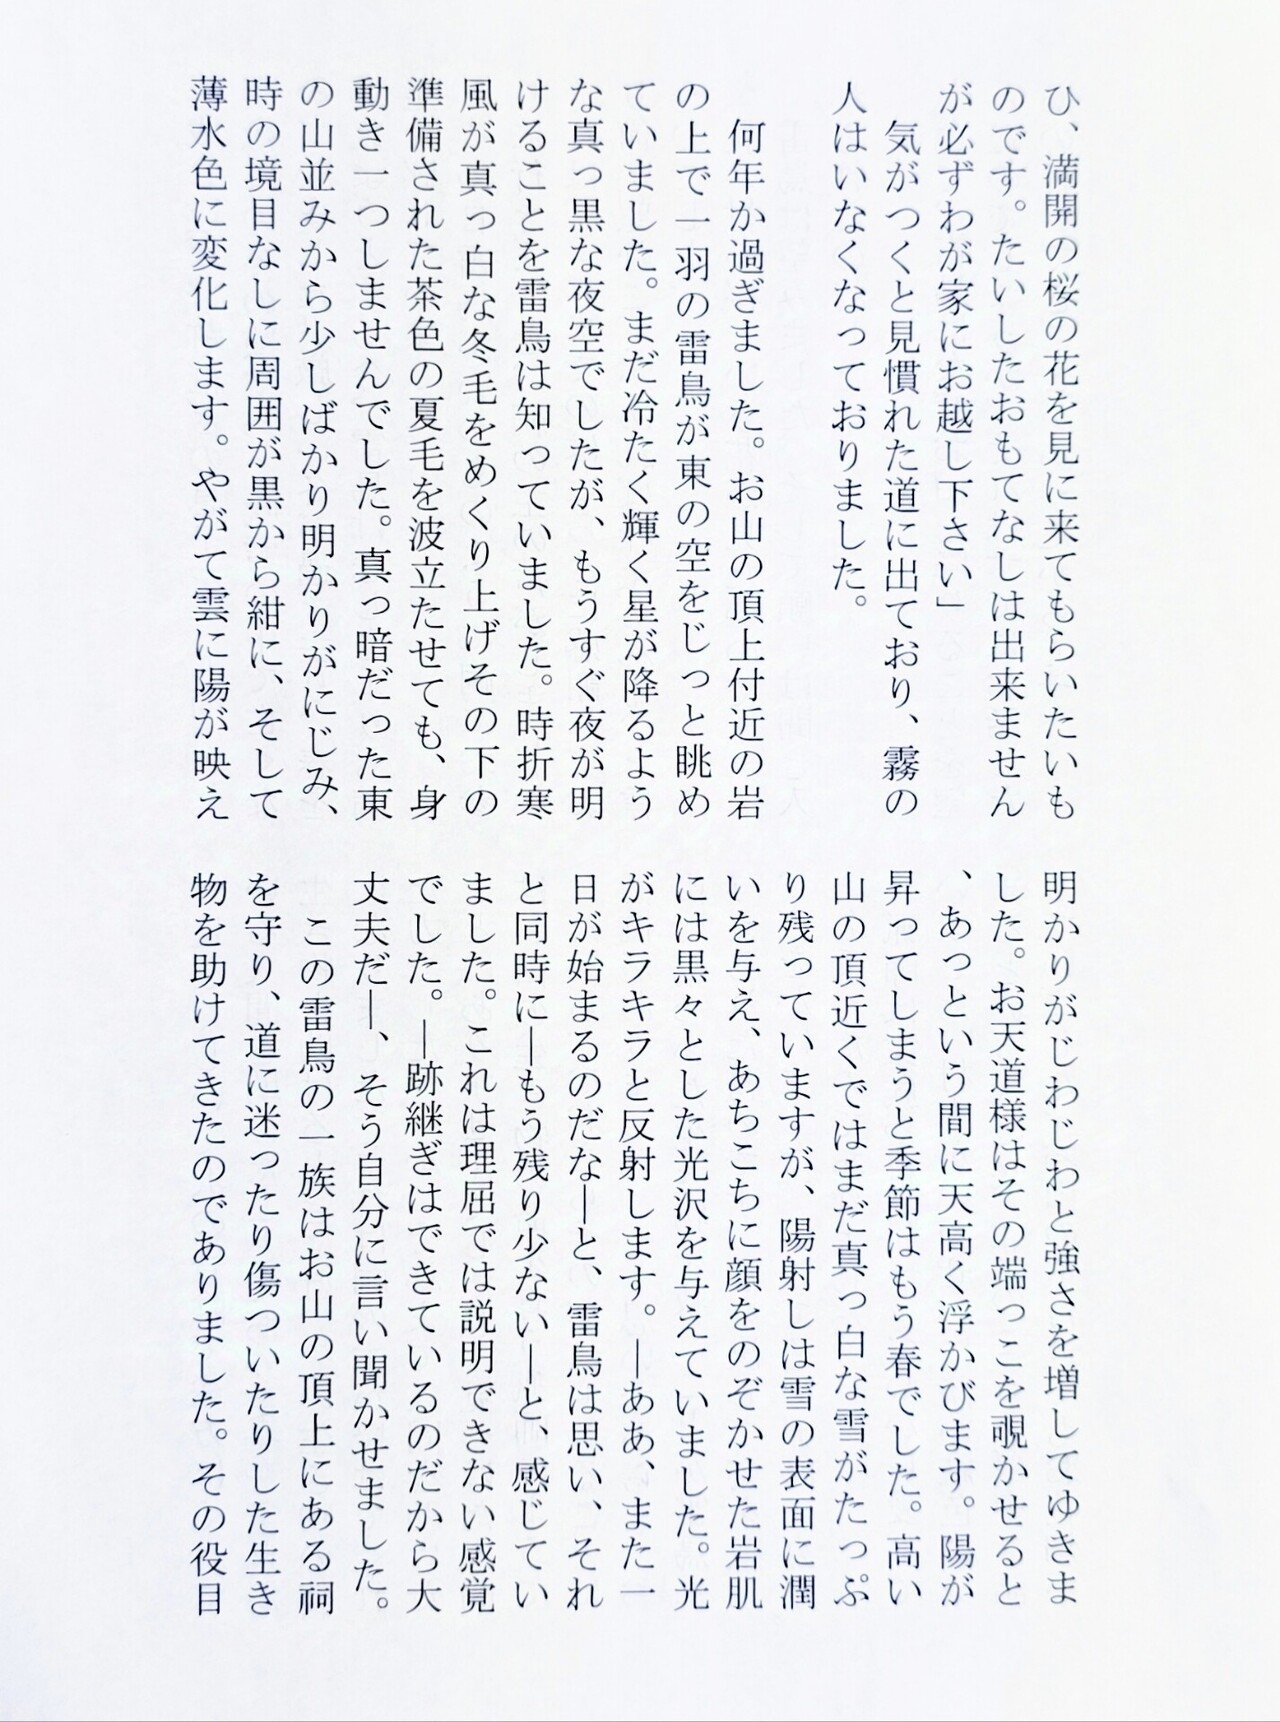 ひ、満開の桜の花を見に来てもらいたいも
のです。たいしたおもてなしは出来ません
が必ずわが家にお越し下さい」
　気がつくと見慣れた道に出ており、霧の
人はいなくなっておりました。
　何年か過ぎました。お山の頂上付近の岩
の上で一羽の雷鳥が東の空をじっと眺め
ていました。まだ冷たく輝く星が降るよう
な真っ黒な夜空でしたが、もうすぐ夜が明
けることを雷鳥は知っていました。時折寒
風が真っ白な冬毛をめくり上げその下の
準備された茶色の夏毛を波立たせても、身
動き一つしませんでした。真っ暗だった東
の山並みから少しばかり明かりがにじみ、
時の境目なしに周囲が黒から紺に、そして
薄水色に変化します。やがて雲に陽が映え
明かりがじわじわと強さを増してゆきま
した。お天道様はその端っこを覗かせると
、あっという間に天高く浮かびます。陽が
昇ってしまうと季節はもう春でした。高い
山の頂近くではまだ真っ白な雪がたっぷ
り残っていますが、陽射しは雪の表面に潤
いを与え、あちこちに顔をのぞかせた岩肌
には黒々とした光沢を与えていました。光
がキラキラと反射します。―ああ、また一
日が始まるのだな―と、雷鳥は思い、それ
と同時に―もう残り少ない―と、感じてい
ました。これは理屈では説明できない感覚
でした。―跡継ぎはできているのだから大
丈夫だ―、そう自分に言い聞かせました。
　この雷鳥の一族はお山の頂上にある祠
を守り、道に迷ったり傷ついたりした生き
物を助けてきたのでありました。その役目